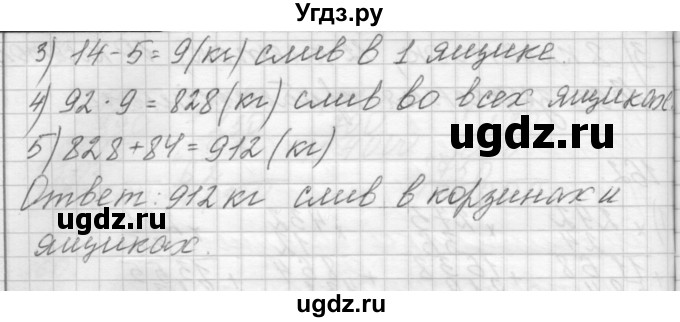 Угдз.ру
3) 14 - 5 = 9 (кг) слив в 1 ящике.
4) 92 · 9 = 828 (кг) слив во всех ящиках
5) 828 + 84 = 912 (кг)
Ответ: 912 кг слив в корзинах и
ящиках.
ugdz.ru
ugdz.ru
ugdz.ru
ugdz.ru